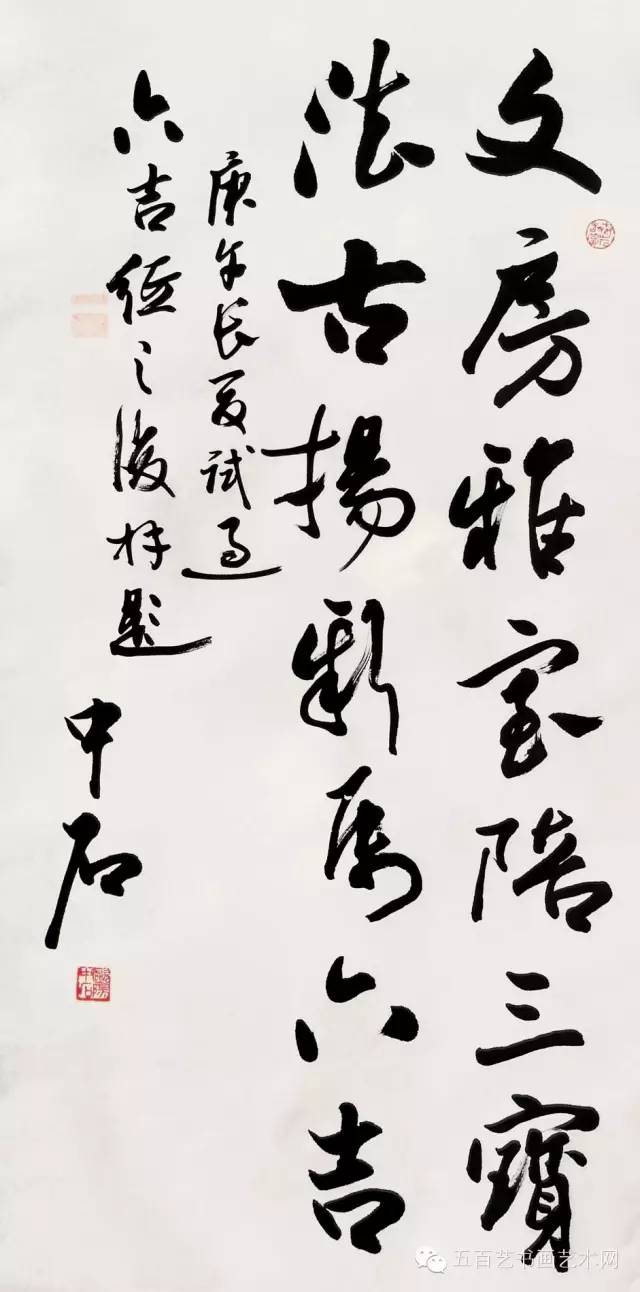 文房雅室陪三寶
法古揚新属六吉
庚午长夏試过
六吉纸之後題
中石
五百艺书画艺术网